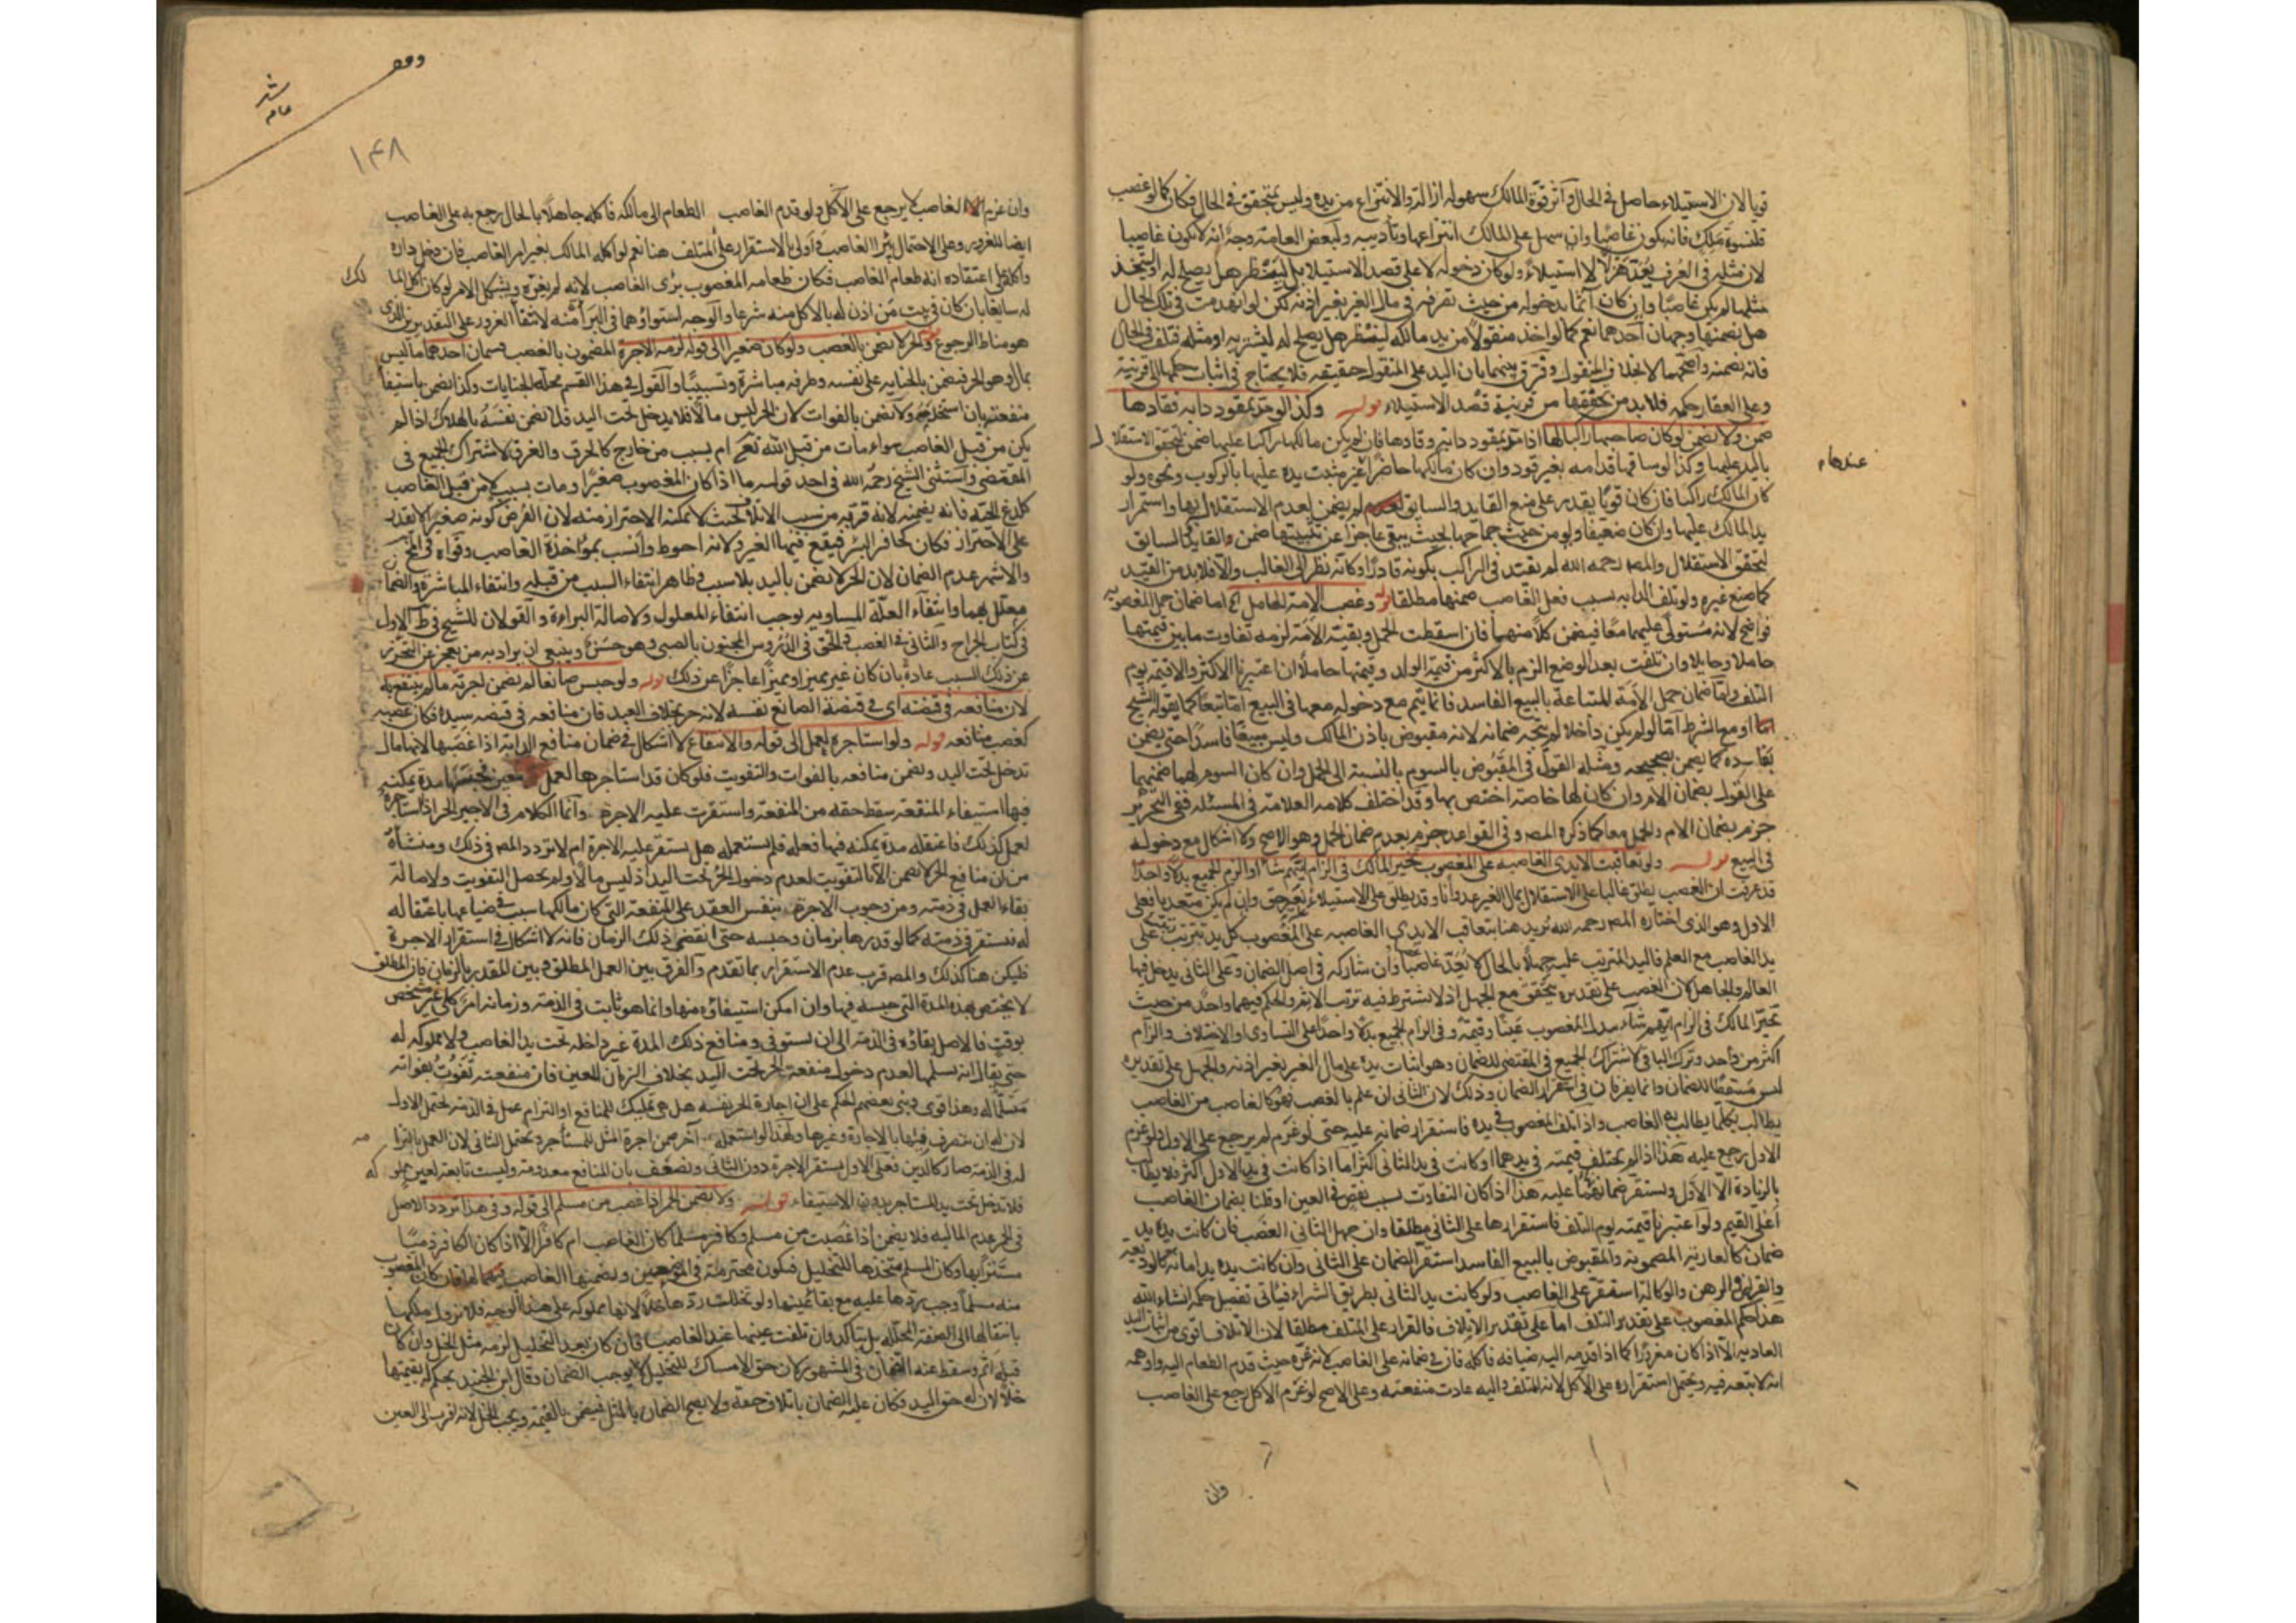 قويا لان الاستيلاء حاصل في الحال وأثر قوة المالك سهوله ازالته والانتزاع من يده وليس بمتحقق في الحال فكان كما لو غصب
قلنسوة ملك فانه يكون غاصبا وان سهل على المالك انتزاعها وتأديبه ولبعض العامة وجه انه لا يكون غاصبا
لان مثله في العرف يعد هزلا لا استيلاء ولو كان دخوله لا على قصد الاستيلا بل لينظر هل يصلح له او ليتخذ
مثلها لم يكن غاصبا وان كان آثما بدخوله من حيث تصرفه في مال الغير بغير اذنه لكن لو انهدمت في تلك الحال
هل يضمنها وجهان أحدهما نعم كما لو اخذ منقولا من يد مالكه لينظر هل يصلح له ليشتريه او مثله فتلف في الحال
فانه يضمنه واصحهما لا بخلاف المنقول وفرق بينهما بان اليد على المنقول حقيقه فلا يحتاج في اثبات حكمها الى قرينة
وعلى العقار حكميه فلا بد من تحققها من قرينة قصد الاستيلاء قوله وكذا لو مد بمقود دابه فقادها
ضمن ولا يضمن لو كان صاحبها راكبا لها اذا مد بمقود دابه وقادها فان لم يكن مالكها راكبا عليها ضمن لتحقق الاستقلال
باليد عليها وكذا لو ساقها قدامه بغير قود وان كان مالكها حاضرا غير مثبت يده عليها بالركوب ونحوه ولو
كان المالك راكبا فان كان قويا يقدر على منع القايد والسايق لم يضمن لعدم الاستقلال بها واستمرار
يد المالك عليها وان كان ضعيفا ولو من حيث جماحها بحيث يبقى عاجزا عن تثبيتها ضمن القايد كالسايق
لتحقق الاستقلال والمص رحمه الله لم يقيد في الراكب بكونه قادرا وكأنه نظر الى الغالب والا فلا بد من القيد
كما صنع غيره ولو تلف الدابه بسبب فعل الغاصب ضمنها مطلقا قوله وغصب الامة الحامل الخ اما ضمان حمل المغصوبه
فواضح لانه مستولى عليهما معا فيضمن كلا منهما فان اسقطت الحمل وبقيت الأمة لزمه تفاوت ما بين قيمتها
حاملا وحايلا وان تلفت بعد الوضع الزم بالاكثر من قيمة الولد وقيمتها حاملا ان اعتبرنا الاكثر والا قيمة يوم
التلف واما ضمان حمل الأمة المبتاعة بالبيع الفاسد فانما يتم مع دخوله معها في البيع اما تبعا كما يقوله الشيخ
او مع الشرط اما لو لم يكن داخلا لم يتجه ضمانه لانه مقبوض باذن المالك وليس مبيعا فاسدا حتى يضمن
بفاسده كما يضمن بصحيحه ومثله القول في المقبوض بالسوم بالنسبة الى الحمل وان كان السوم لهما ضمنهما
على القول بضمان الام وان كان لها خاصة اختص بها وقد اختلف كلام العلامة في المسئله ففي التحرير
جزم بضمان الام والحمل معا كما ذكره المص وفي القواعد جزم بعدم ضمان الحمل وهو الاصح ولا اشكال مع دخوله
في البيع قوله ولو تعاقبت الايدي الغاصبه على المغصوب تخير المالك في الزام ايهم شاء او الزم الجميع بدلا واحدا
قد عرفت ان الغصب يطلق غالبا على الاستقلال بمال الغير عدوانا وقد يطلق على الاستيلاء بغير حق وان لم يكن متعديا فعلى
الاول وهو الذي اختاره المص رحمه الله نريد هنا بتعاقب الايدي الغاصبه على المغصوب كل يد ترتبت على
يد الغاصب مع العلم فاليد المترتب عليه جهلا بالحال لا يعد غاصبا وان شاركه في اصل الضمان وعلى الثاني يدخل فيها
العالم والجاهل لان الغصب على تقديره يتحقق مع الجهل اذ لا يشترط فيه ترتب الاثم والحكم فيهما واحد من حيث
تخير المالك في الزام ايهم شاء ببدل المغصوب عينا وقيمة وفي الزام الجميع بدلا واحدا على التساوي او الاختلاف والزام
اكثر من واحد وترك الباقي لاشتراك الجميع في المقتضي للضمان وهو اثبات يده على مال الغير بغير اذنه والجهل على تقديره
ليس مسقطا للضمان وانما يفترقان في استقرار الضمان وذلك لان الثاني ان علم بالغصب فهو كالغاصب من الغاصب
يطالب بكلما يطالب به الغاصب واذا تلف المغصوب في يده فاستقرار ضمانه عليه حتى لو غرم لم يرجع على الاول ولو غرم
الاول رجع عليه هذا اذا لم يختلف قيمته في يدهما او كانت في يد الثاني اكثر اما اذا كانت في يد الاول اكثر فلا يطالب
بالزيادة الا الاول ويستقر ضمانها عليه هذا اذا كان التفاوت بسبب نقص في العين او قلنا بضمان الغاصب
أعلى القيم ولو اعتبرنا قيمته يوم التلف فاستقرارها على الثاني مطلقا وان جهل الثاني الغصب فان كانت يده يد
ضمان كالعارية المضمونه والمقبوض بالبيع الفاسد استقر الضمان على الثاني وان كانت يده يد امانه كالوديعة
والقراض والرهن والوكالة استقر على الغاصب ولو كانت يد الثاني بطريق الشراء فيأتي تفصيل حكمه انشاء الله
هذا حكم المغصوب على تقدير التلف اما على تقدير الاتلاف فالقرار على المتلف مطلقا لان الاتلاف اقوى من اثبات اليد
العاديه الا اذا كان مغرورا كما اذا قدمه اليه ضيافه فاكله فان ضمانه على الغاصب لانه غره حيث قدم الطعام اليه واوهمه
انه لا تبعه فيه ويحتمل استقراره على الآكل لانه المتلف واليه عادت منفعته وعلى الاصح لو غرم الاكل رجع على الغاصب
وان
عندهام
وقف
١٤٨
وان غرم الغاصب لا يرجع على الآكل ولو قدم الغاصب الطعام الى مالكه فاكله جاهلا بالحال رجع به على الغاصب
ايضا للغرور وعلى الاحتمال يبرا الغاصب واولى بالاستقرار على المتلف هنا نعم لو اكله المالك بغير امر الغاصب فان دخل داره
واكله على اعتقاده انه طعام الغاصب فكان طعامه المغصوب برئ الغاصب لانه لم يغره ويشكل الامر لو كان اكل المالك
له سايغا بان كان في بيت من اذن له بالاكل منه شرعا والوجه استواؤهما في البرأة منه لانتفأ الغرور على التقديرين الذي
هو مناط الرجوع قوله والحر لا يضمن بالغصب ولو كان صغيرا الى قوله لزمه الاجرة المضمون بالغصب قسمان احدهما ما ليس
بمال وهو الحر فيضمن بالجنايه على نفسه وطرفه مباشرة وتسبيبا والقول في هذا القسم محله الجنايات وكذا يضمن باستيفأ
منفعته بان استخدمه ولا يضمن بالفوات لان الحر ليس مالا فلا يدخل تحت اليد فلا يضمن نفسه بالهلاك اذا لم
يكن من قبل الغاصب سواء مات من قبل الله تعالى ام بسبب من خارج كالحرق والغرق لاشتراك الجميع في
المقتضي واستثنى الشيخ رحمه الله في احد قوليه ما اذا كان المغصوب صغيرا ومات بسبب لا من قبل الغاصب
كلدغ الحية فانه يضمنه لانه قربه من سبب الاتلاف بحيث لا يمكنه الاحتراز منه لان الفرض كونه صغيرا لا يقدر
على الاحتراز فكان كحافر البئر فيقع فيها الغير ولانه احوط وأنسب بمؤاخذة الغاصب وقواه في المخ
والاشهر عدم الضمان لان الحر لا يضمن باليد بلا سبب وظاهر انتفاء السبب من قبله وانتفاء المباشرة والضما
معلل بهما وانتفأء العلة المساويه يوجب انتفاء المعلول ولاصالة البراءة والقولان للشيخ في ط الاول
في كتاب الجراح والثاني في الغصب والحق في الدروس المجنون بالصبي وهو حسن وينبغي ان يراد به من يعجز عن التحرز
عن ذلك السبب عادة بان كان غير مميز او مميزا عاجزا عن ذلك قوله ولو حبس صانعا لم يضمن اجرته ما لم ينتفع به
لان منافعه في قبضته اي في قبضة الصانع نفسه لانه حر بخلاف العبد فان منافعه في قبضه سيده فكان غصبه
كغصب منافعه قوله ولو استاجره لعمل الى قوله والاسقاع لا اشكال في ضمان منافع الدابة اذا غصبها لانها مال
تدخل تحت اليد وتضمن منافعه بالفوات والتفويت فلو كان قد استاجرها لعمل معين فحبسها مدة يمكنه
فيها استيفاء المنفعة سقط حقه من المنفعة واستقرت عليه الاجرة وانما الكلام في الاجير الحر اذا استاجره
لعمل كذلك فاعتقله مدة يمكنه فيها فعله فلم يستعمله هل يستقر عليه الاجرة ام لا تردد المص في ذلك ومنشأه
من ان منافع الحر لا تضمن الا بالتفويت لعدم دخول الحر تحت اليد اذ ليس مالا ولم يحصل التفويت ولاصالة
بقاء العمل في ذمته ومن وجوب الاجرة بنفس العقد على المنفعة التي كان مالكها سبب ضياعها باعتقاله
له فتستقر في ذمته كما لو قدرها بزمان وحبسه حتى انقضى ذلك الزمان فانه لا اشكال في استقرار الاجرة
فليكن هنا كذلك والمص قرب عدم الاستقرار بما تقدم والفرق بين العمل المطلق وبين المقدر بالزمان فان المطلق
لا يختص بهذه المدة التي حبسه فيها وان امكن استيفاؤه منها وانما هو ثابت في الذمة وزمانه امر كلي غير مشخص
بوقت فالاصل بقاؤه في الذمة الى ان يستوفى ومنافع ذلك المدة غير داخله تحت يد الغاصب ولا مملوكه له
حتى يقال انه تسلمها لعدم دخول منفعة الحر تحت اليد بخلاف الزمان المعين فان منفعته تفوت بفواته
مسلما له وهذا قوى وبنى بعضهم الحكم على ان اجارة الحر نفسه هل هي تمليك للمنافع او التزام عمل في الذمة يحتمل الاول
لان له ان يتصرف فيها بالاجارة وغيرها ولهذا لو استعمله آخر ضمن اجرة المثل للمستأجر ويحتمل الثاني لان العمل بالتزا
له في الذمة صار كالدين فعلى الاول يستقر الاجرة دون الثاني ويضعف بان المنافع معدومة وليست تابعة لعين مملوكه
فلا تدخل تحت يد المستاجر بدون الاستيفاء قوله ولا يضمن الخمر اذا غصب من مسلم الى قوله وفي هذا تردد الاصل
في الخمر عدم الماليه فلا يضمن اذا غصبت من مسلم وكافر مسلما كان الغاصب ام كافرا الا اذا كان الكافر ذميا
مستترا بها وكان المسلم متخذها للتخليل فيكون محترمة في الموضعين ويضمنها الغاصب فان كان المغصوب
منه مسلما وجب ردها عليه مع بقاء عينها ولو تخللت ردها خلا لانها مملوكه على هذا الوجه فلا تزول ملكها
بانتقالها الى الصفة المحلله بل يتأكد وان تلفت عينها عند الغاصب فان كان بعد التخليل لزمه مثل الخل وان كان
قبله اثم وسقط عنه الضمان في المشهور لان حق الامساك للتخليل لا يوجب الضمان وقال ابن الجنيد يحكم له بقيمتها
خلا لان له حق اليد وكان عليه الضمان باتلاف حقه ولا يصح الضمان بالمثل فيضمن بالقيمة ويجب الخل لانه اقرب الى العين